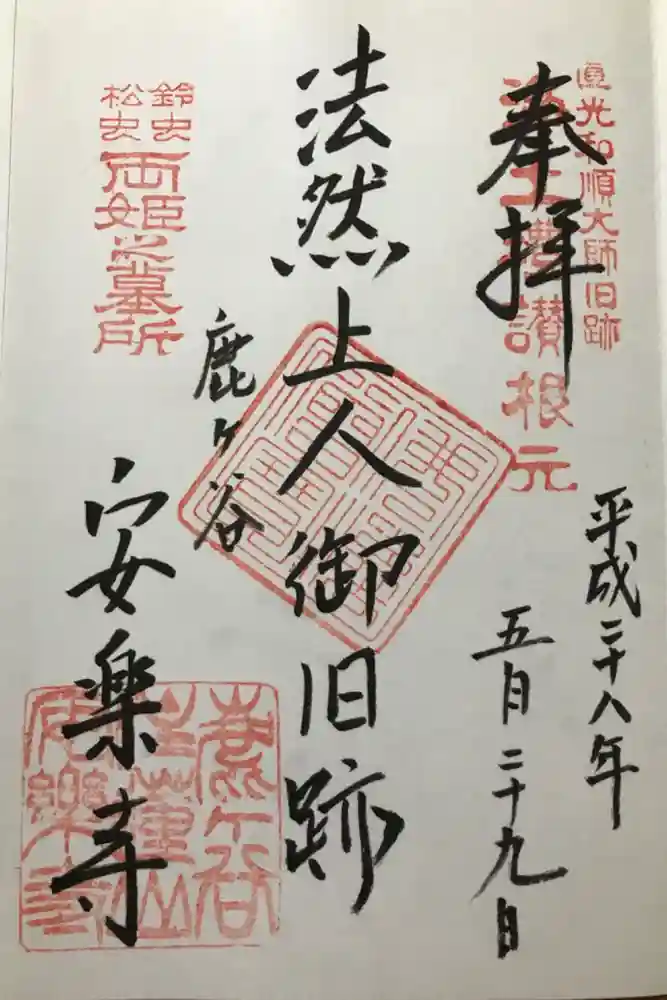 圓光和順大師旧跡
浄土禮讃根元
奉拝
平成二十八年
五月二十九日
法然上人御旧跡
鹿ヶ谷
安楽寺
鈴虫
松虫
両姫之墓所
鹿ヶ谷
住蓮山
安樂寺